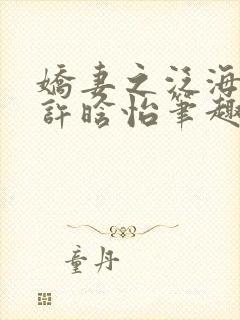 嬌妻之泛海
許晗怡筆趣
童丹